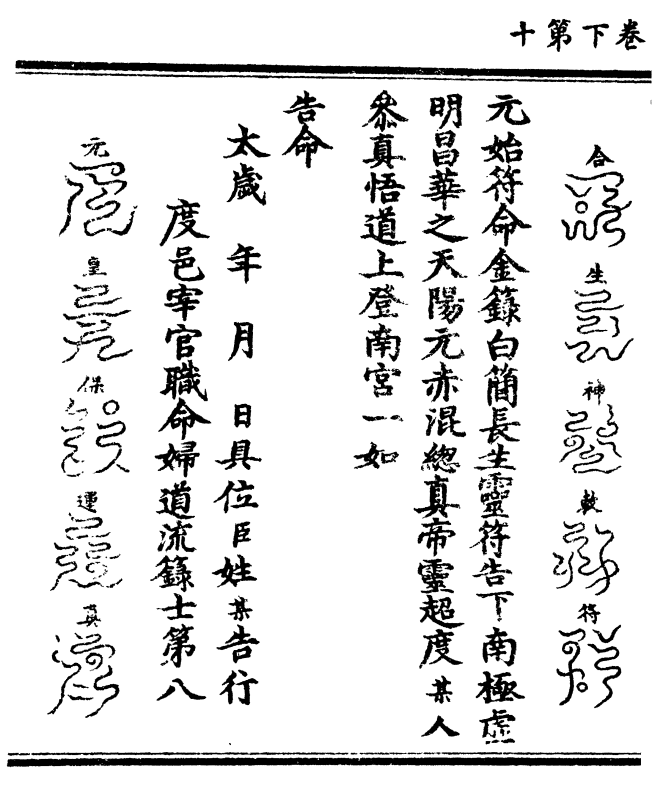 卷下第十
合生神敕符
元始符命金籙白簡長生靈符告下南極虛
明昌華之天陽元赤混總真帝靈超度某人
叅真悟道上登南宮一如
告命
太歲 年 月 日具位臣姓某告行
度邑宰官職命婦道流籙士第八
元皇保運真